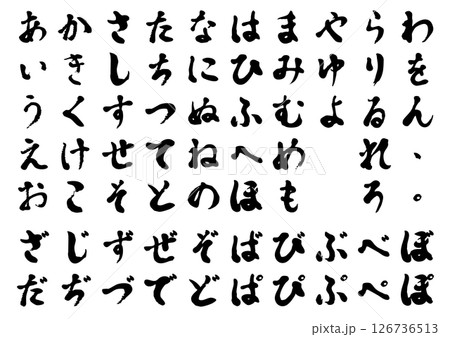 あかさたなはまやらわ
いきしちにひみゆりを
うくすつぬふむよるん
えけせてねへめれ、
おこそとのほもろ。
ざじずぜぞばびぶべぼ
だぢづでどぱぴぷぺぽ
pixta.jp - 126736513